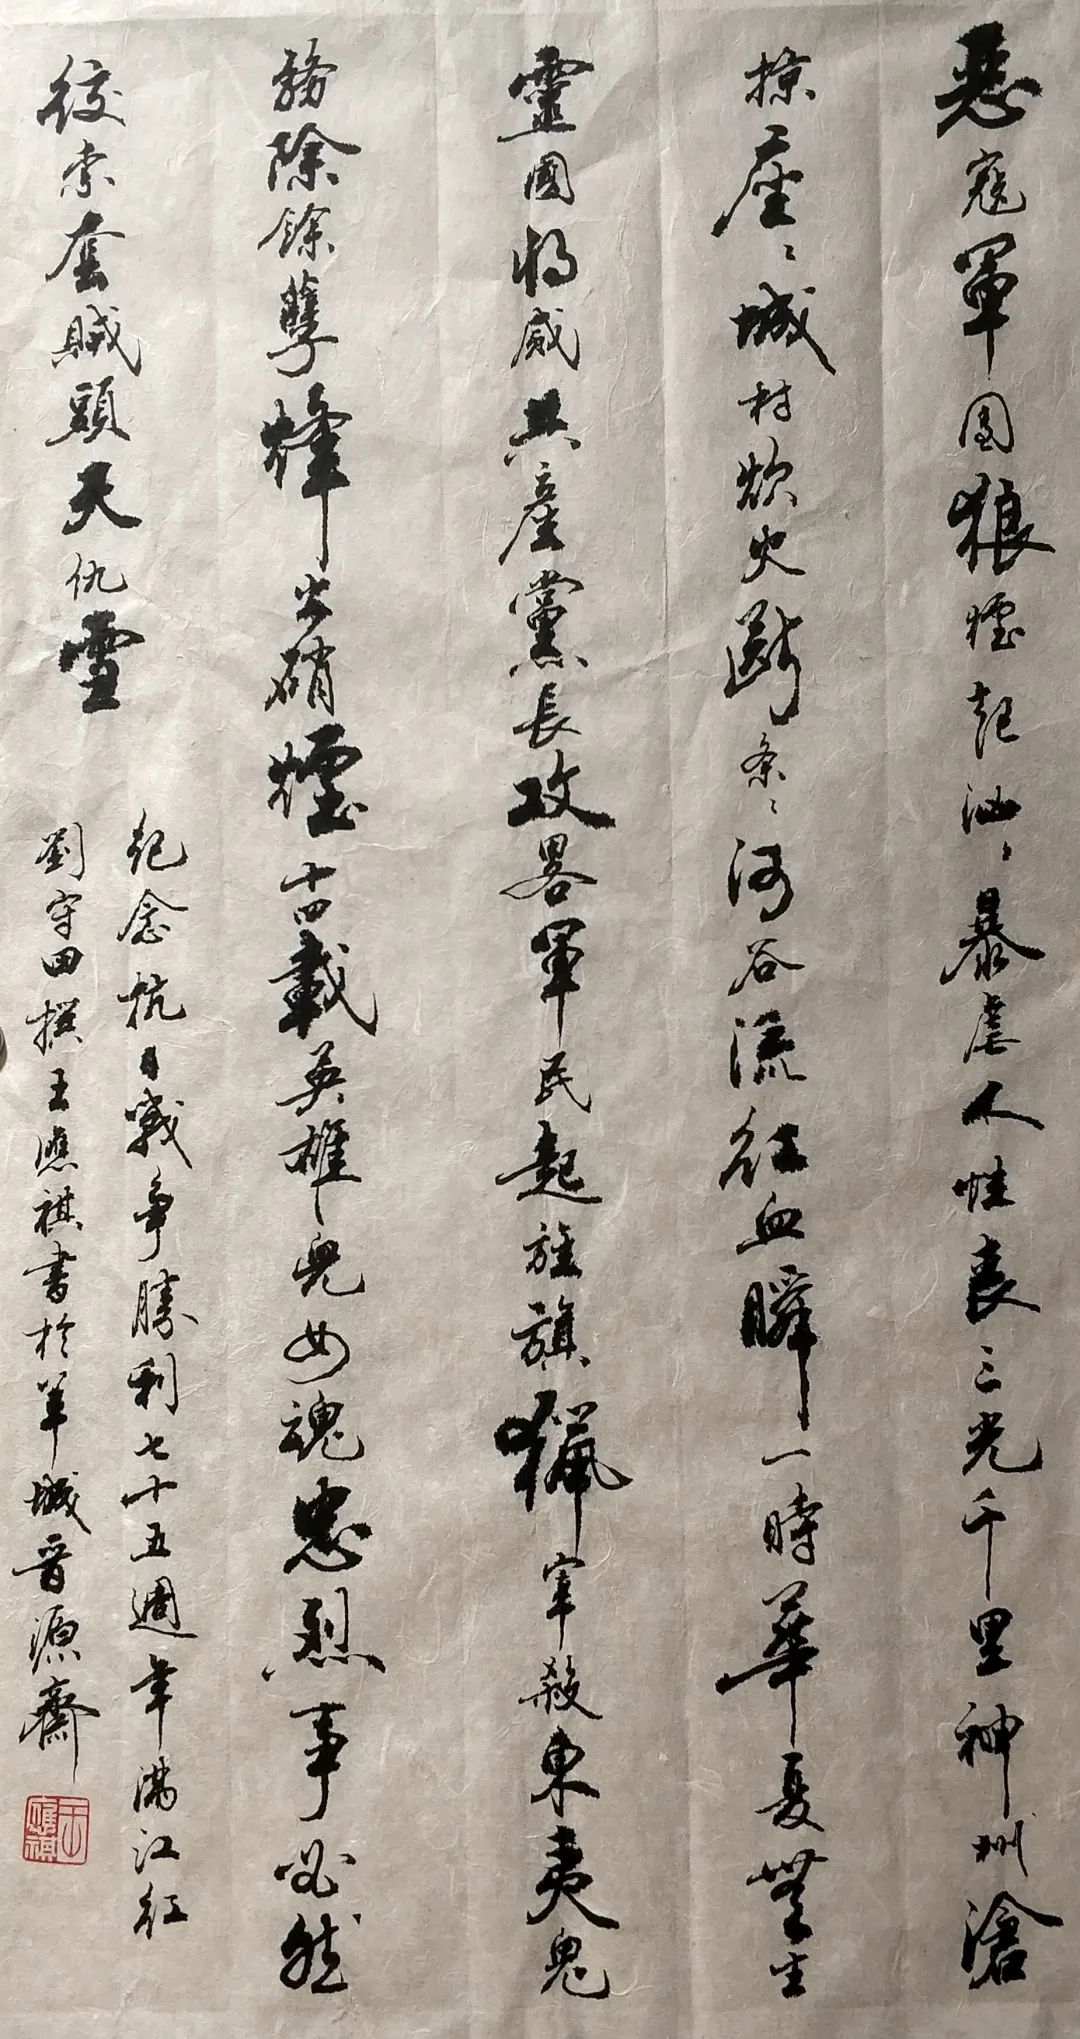 惡寇軍團狼煙起汹〻暴虐人性喪三光千里神州滄
掠座〻城村炊火斷條〻河谷流紅血瞬一時華夏無生
靈國將威共產黨長攻畧軍民起旌旗獵宰殺東夷鬼
務除餘孽烽火硝煙十四載英雄兒女魂忠烈事必然
絞索套賊頭天仇雪
紀念抗日戰爭勝利七十五週年滿江紅
劉守田撰王應祺書於羊城晉源齋
王應祺